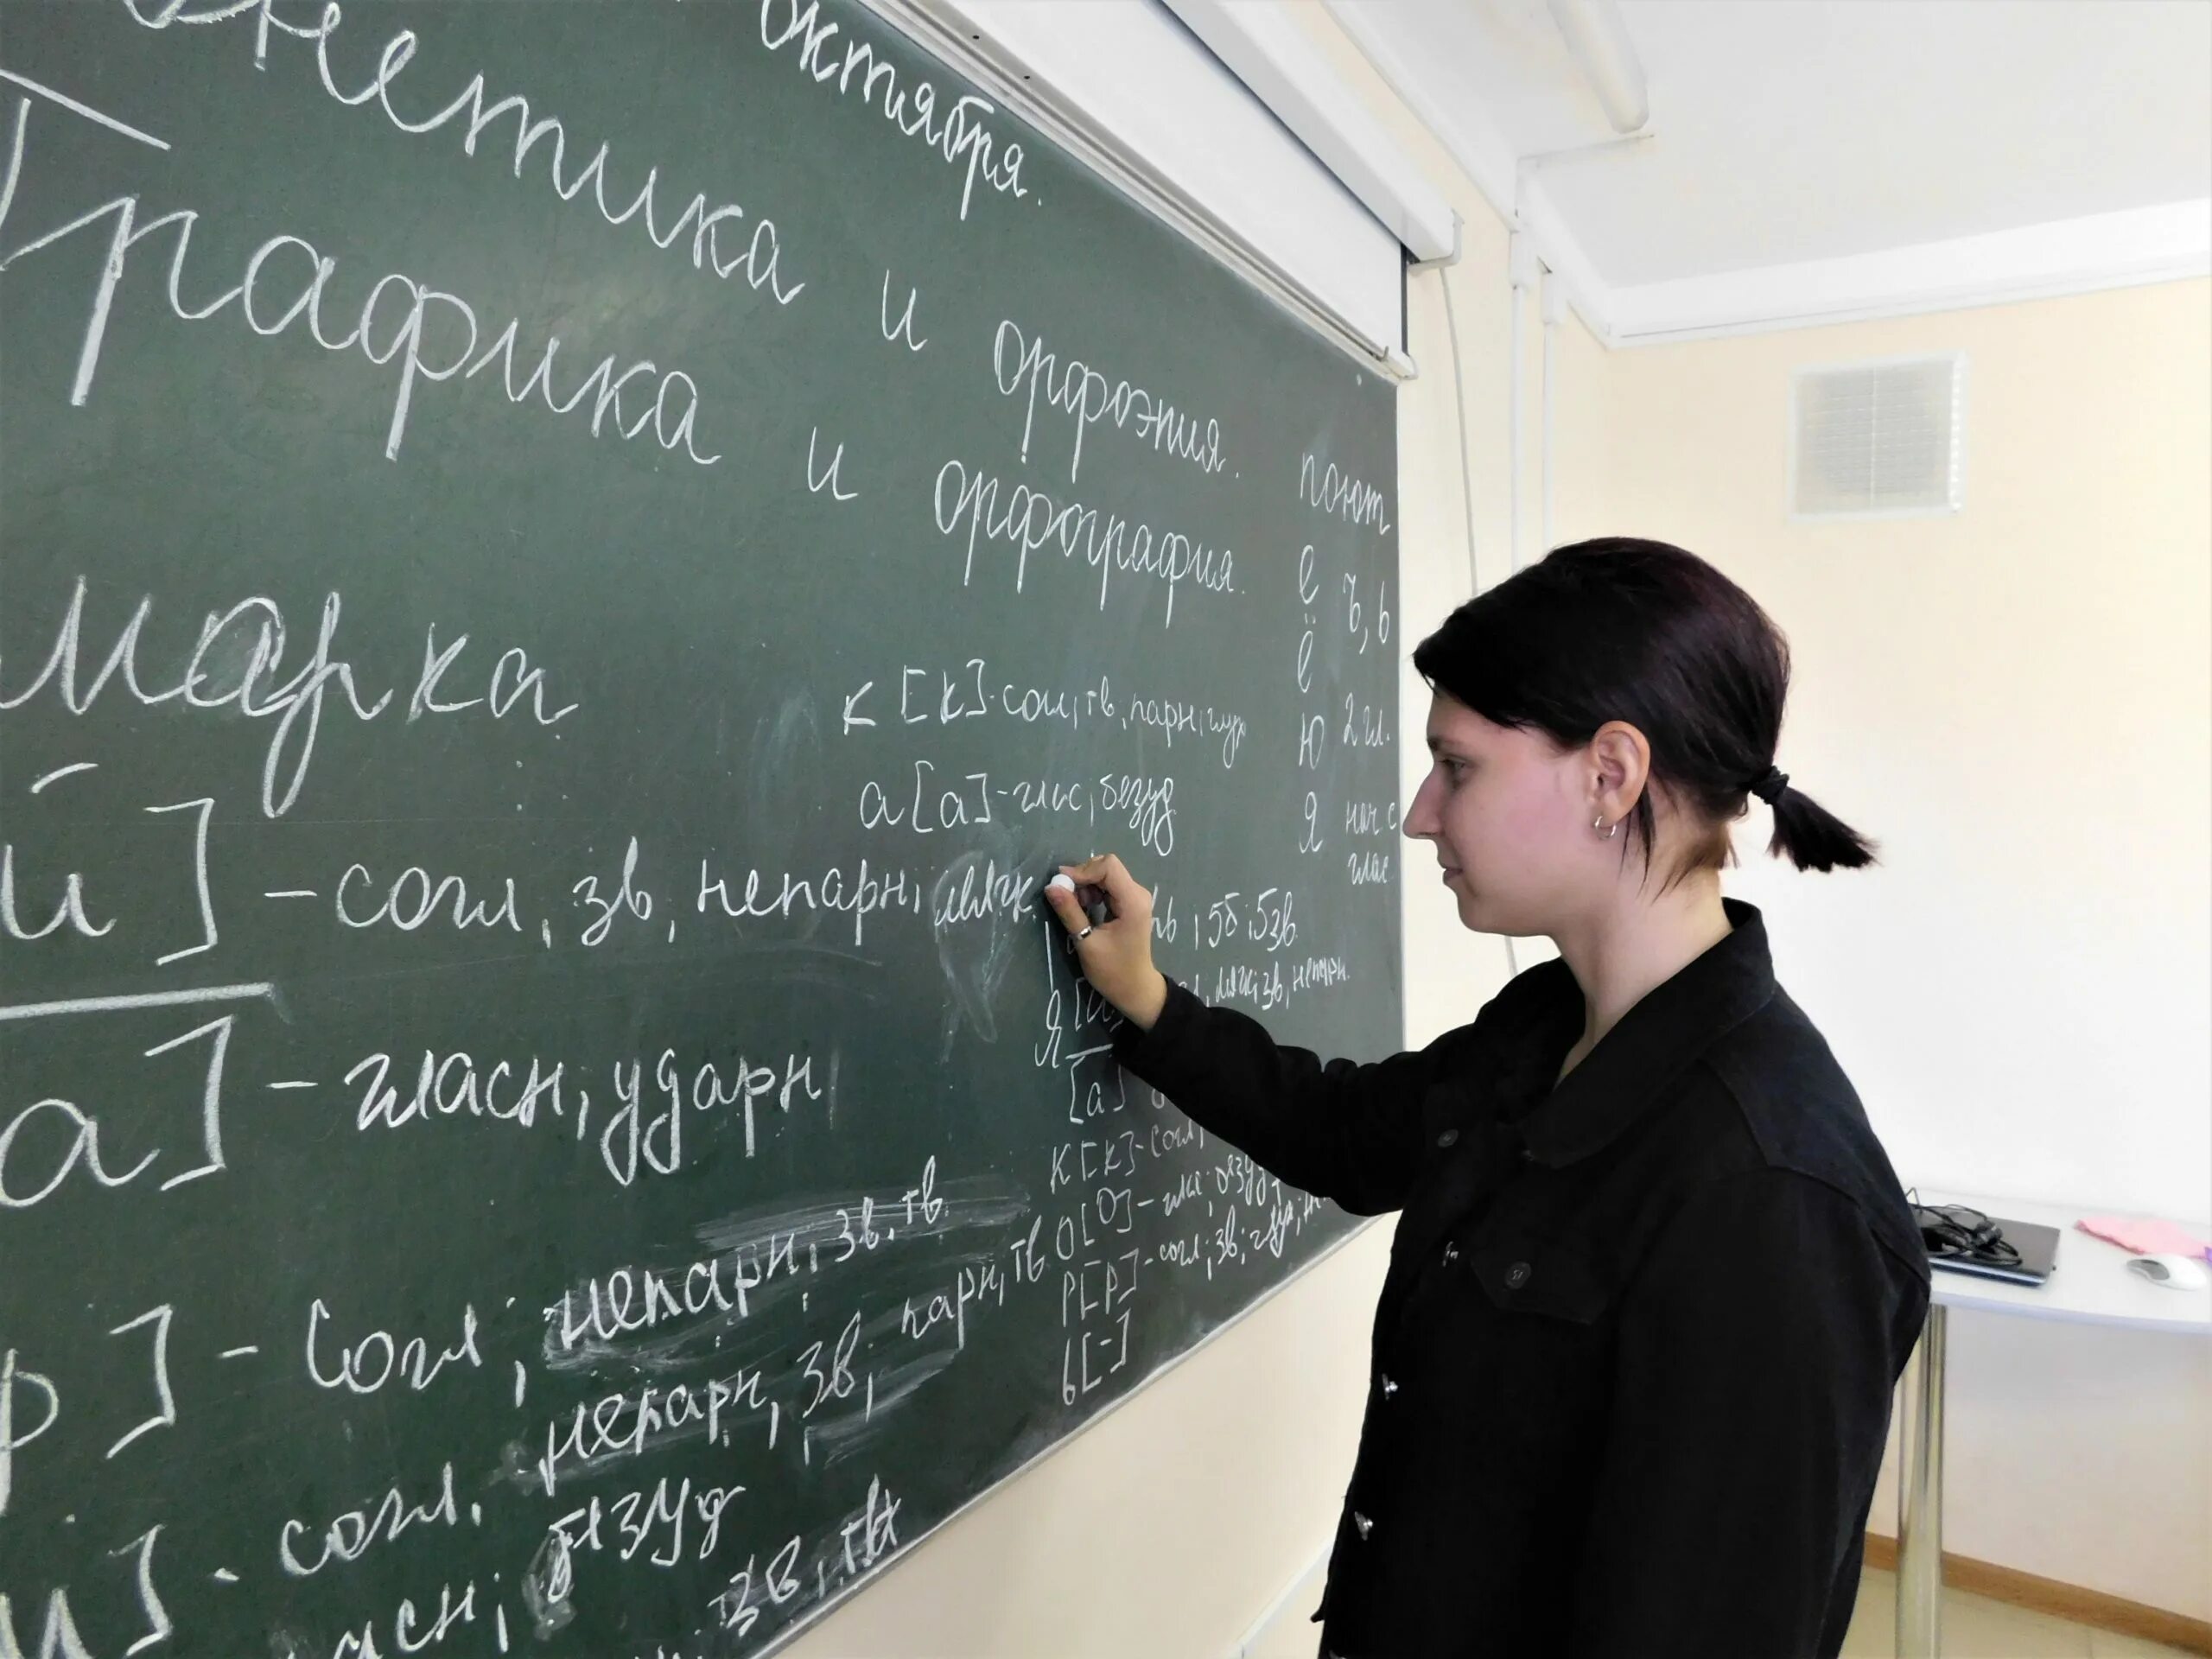 октября.
и орфоэпия.
Графика и орфография.
марка
й] – согл, зв, непарн, мягк
а] – гласн, ударн
р] – согл, непарн, зв. тв
] - согл. непарн, зв, парн, тв
безуд
зв, тв
к [к] - согл, тв, парн, глух
а [а] - глас, безуд
5б; 5зв
мягк, зв, непарн.
я
[а]
к [к] - согл,
о [о] - глас, безуд
р [р] - согл, зв,
ь [-]
поют
е ъ, ь
ё
ю 2 гл.
я нач. с
глас